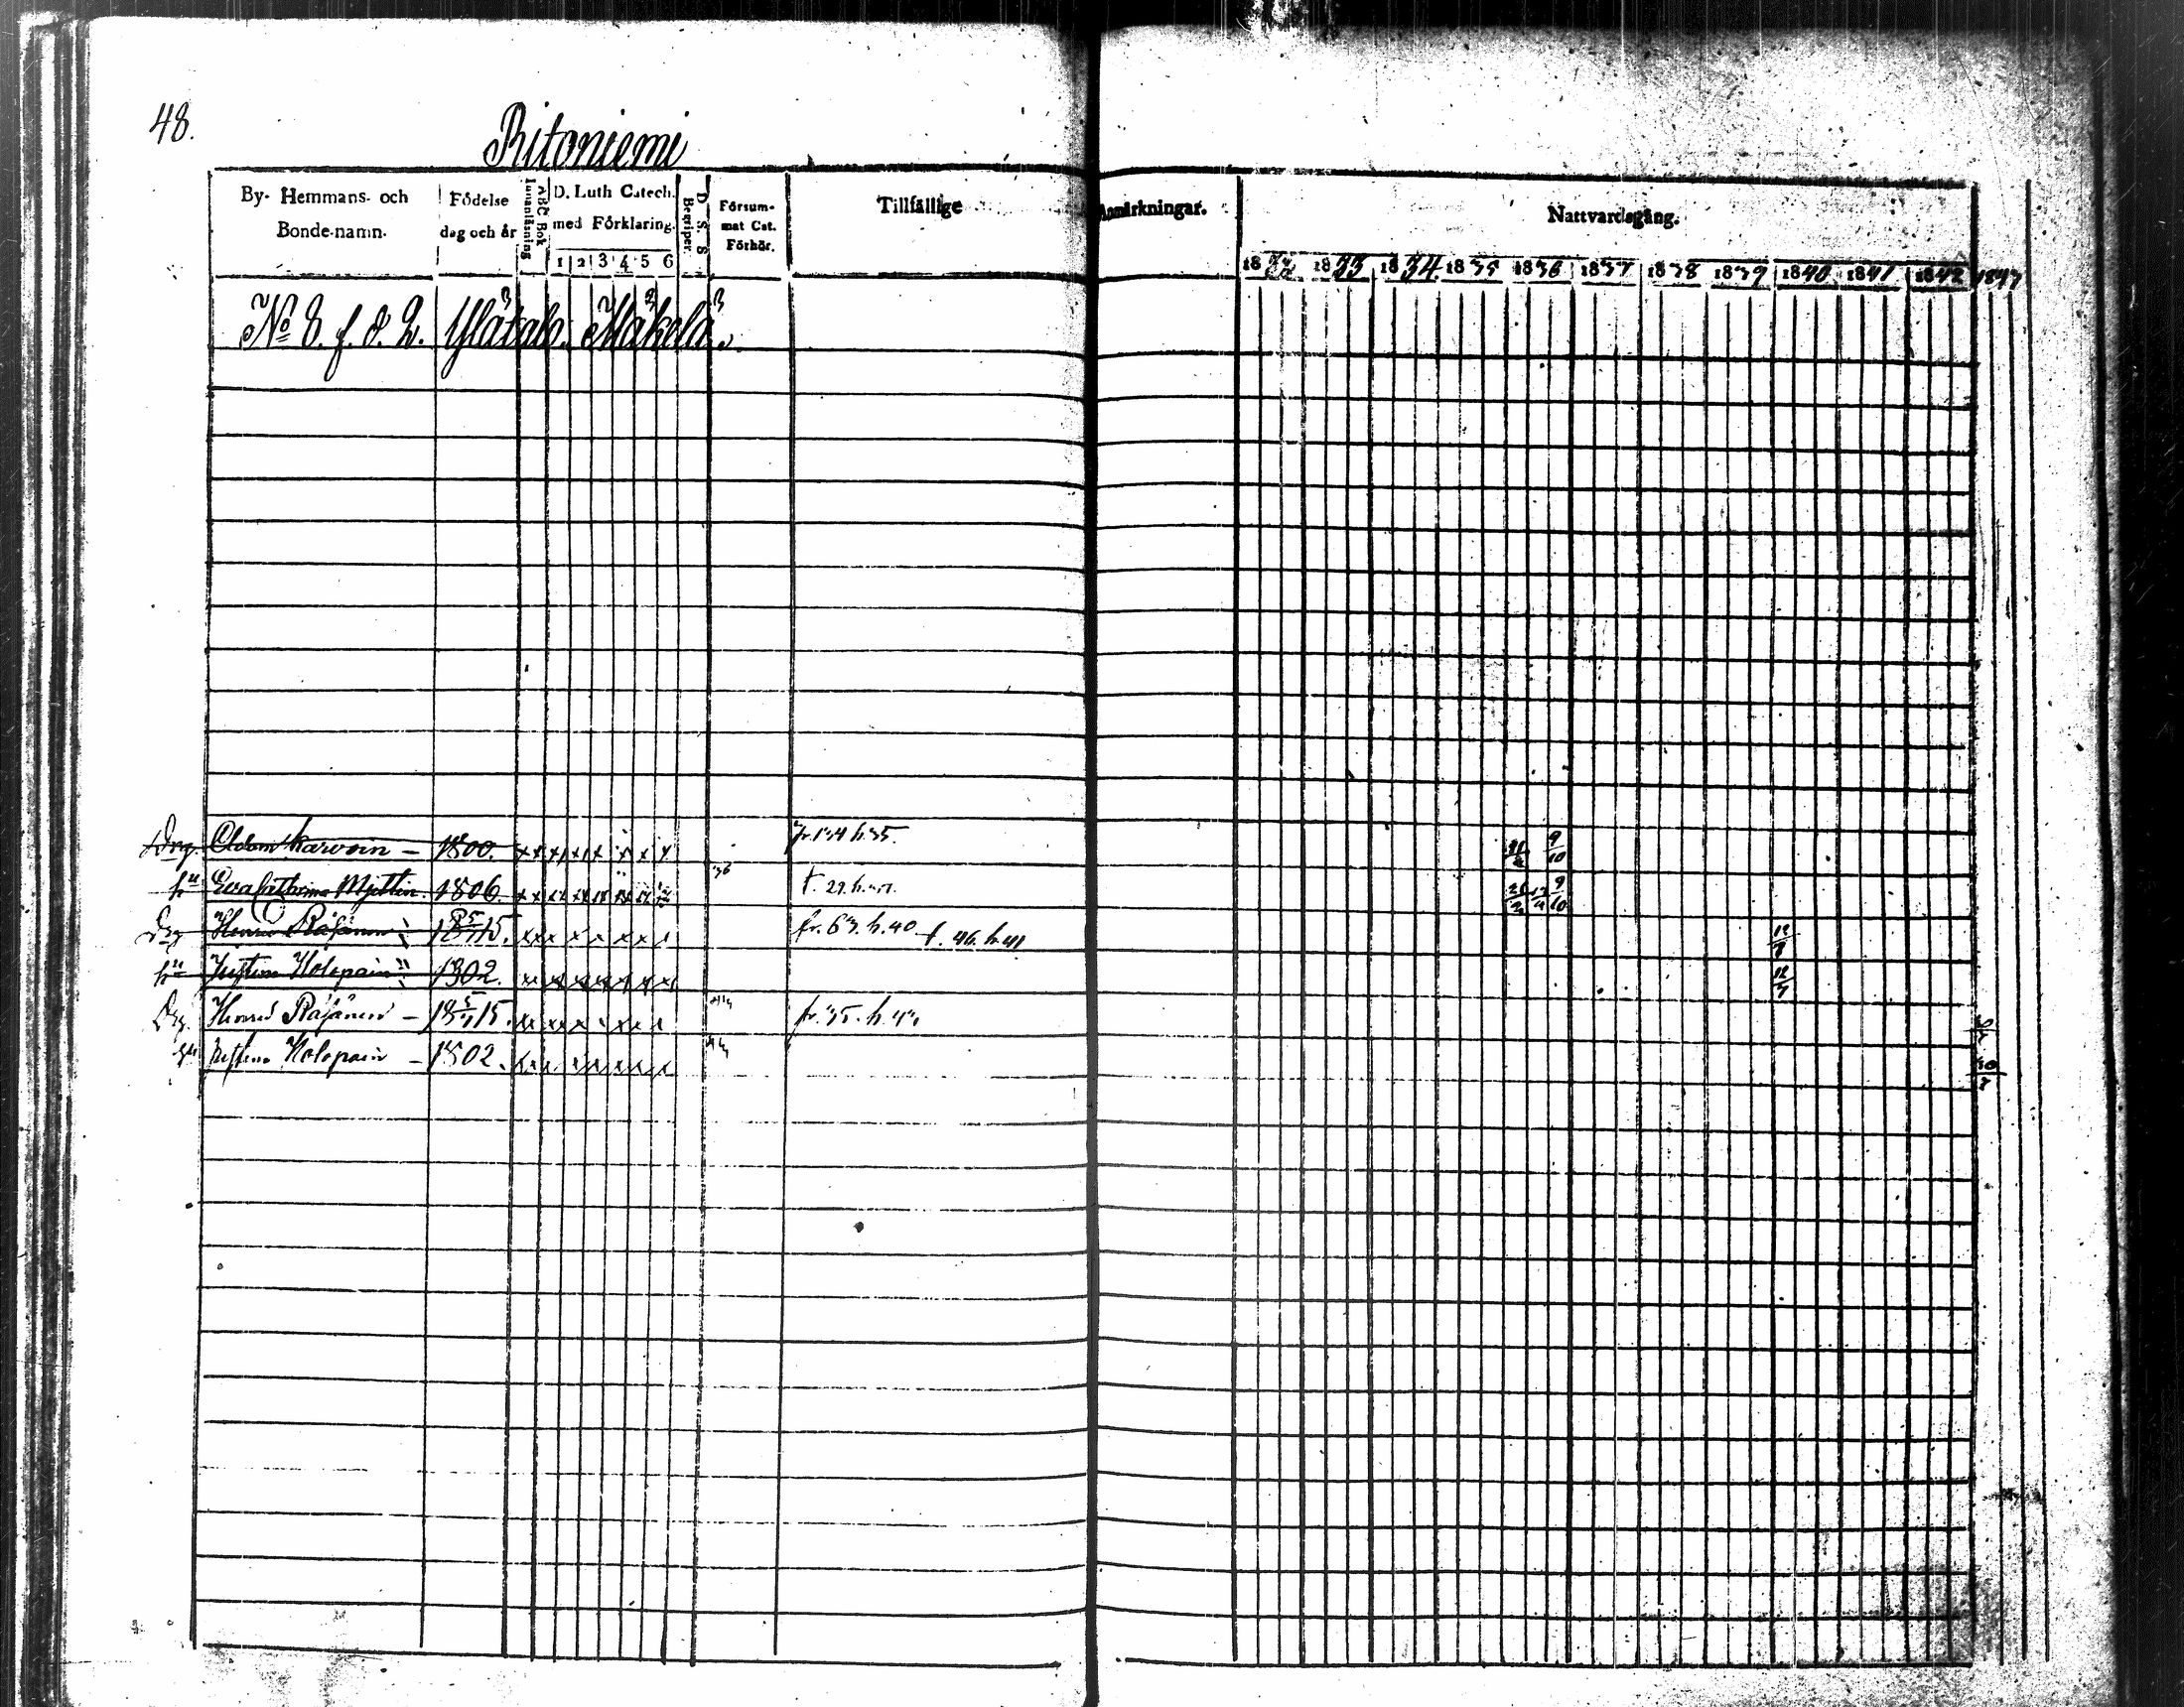 48.
Ritoniemi
By- Hemmans- och Bonde-namn. Födelse dag och år ABC Bok Innanläsning D. Luth Catech. med Förklaring. 1 2 3 4 5 6 D. S. S. Begriper Försum-mat Cat. Förhör. Tillfällige Anmärkningar. Nattvardsgång.
1832 1833 1834 1835 1836 1837 1838 1839 1840 1841 1842 1843
No 8. f. d. 2. Mäkelä
Drg Adam Karvoin – 1800. x x x x x x x x x fr. 134 h. 35. 9/10
hu Eva Cathrina 1806. 36 t. 29. h. 9/10
Drg Henric Räsänen 18 5/1 15. x x x x x x x x fr. 63. h. 40 t. 46. h. 41 12/7
hu Justina Holopain 1802. x x x x x x x x 12/7
Drg. Henric Räsänen – 18 5/1 15. x x x x x x x fr. 35. h. 43
hu Justina Holopain – 1802. x x x x x x x x 30/7